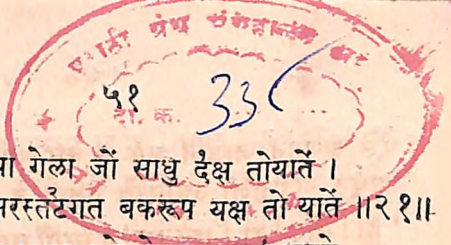 मराठी ग्रंथ संग्रहालय
५१
336
दा. क.
पा गेला जों साधु दक्ष तोयातें ।
परस्तटगत बकरूप यक्ष तो यातें ॥२१॥